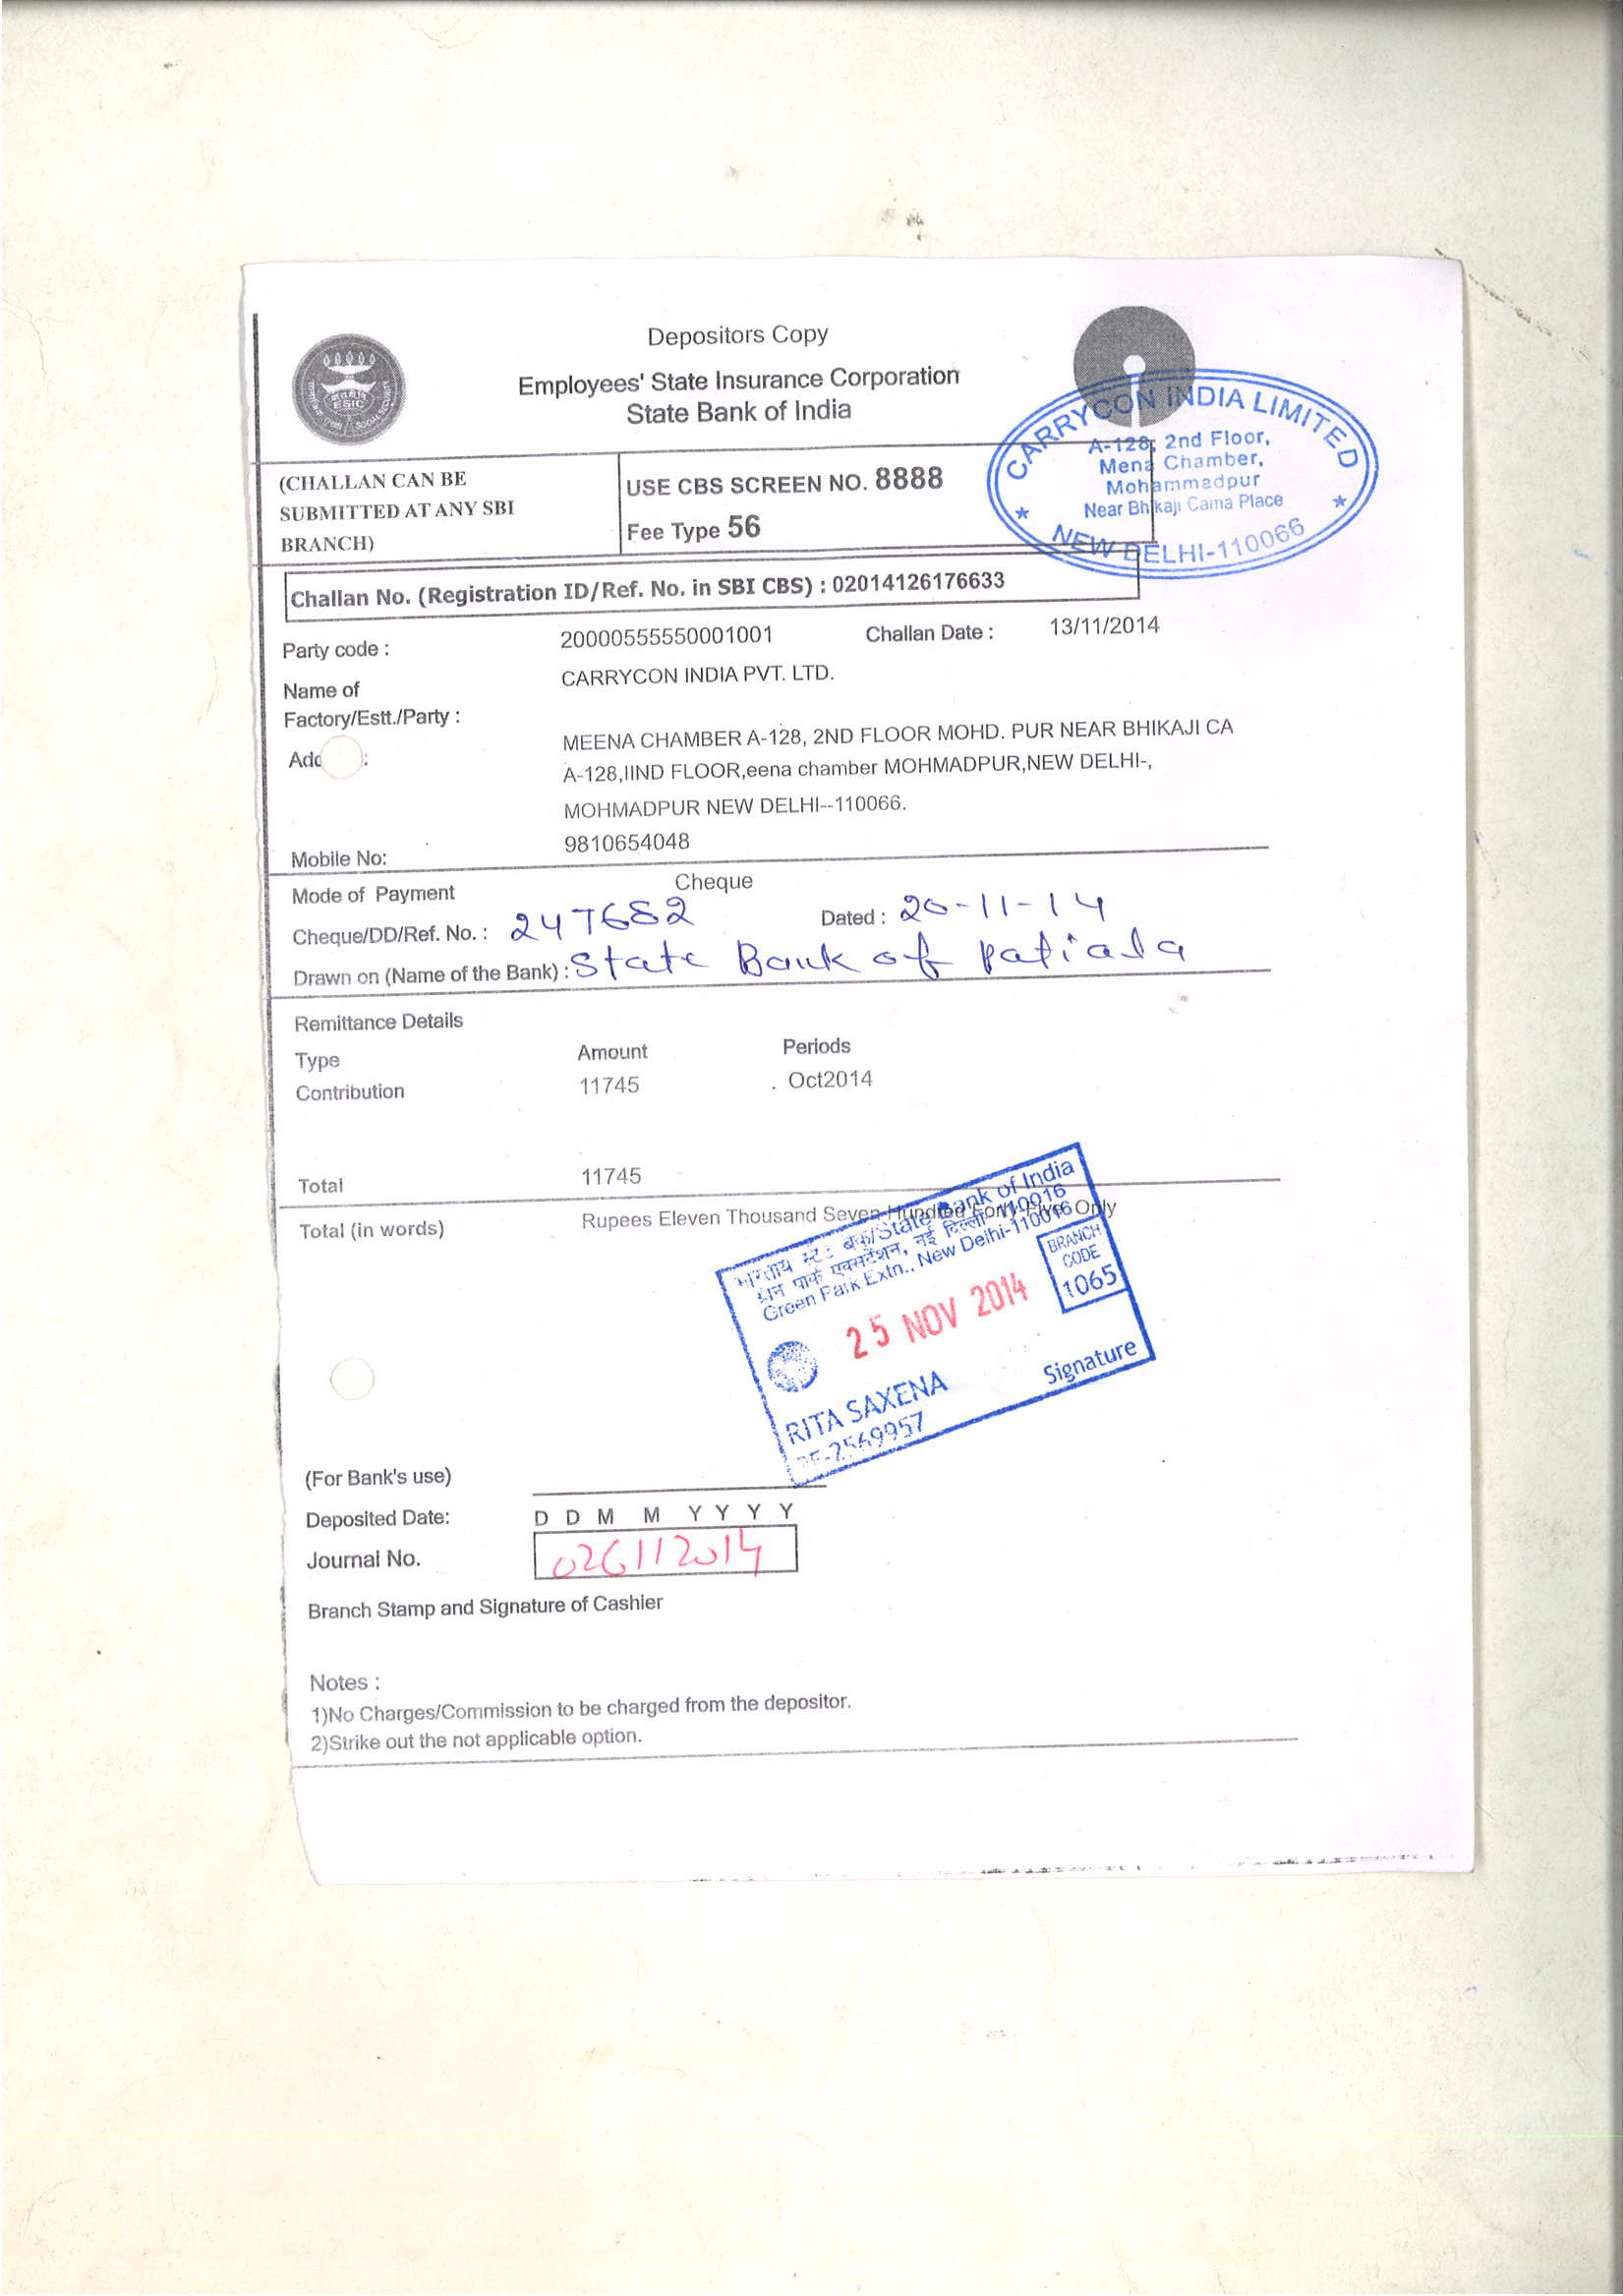 Depositors Copy
Employees' State Insurance Corporation
State Bank of India
ESIC
CARRYCON INDIA LIMITED
A-128, 2nd Floor,
Mena Chamber,
Mohammadpur
Near Bhikaji Cama Place
NEW DELHI-110066
(CHALLAN CAN BE
SUBMITTED AT ANY SBI
BRANCH)
USE CBS SCREEN NO. 8888
Fee Type 56
Challan No. (Registration ID/Ref. No. in SBI CBS) : 02014126176633
Party code : 20000555550001001 Challan Date : 13/11/2014
Name of
Factory/Estt./Party :
CARRYCON INDIA PVT. LTD.
MEENA CHAMBER A-128, 2ND FLOOR MOHD. PUR NEAR BHIKAJI CA
A-128,IIND FLOOR,eena chamber MOHMADPUR,NEW DELHI-,
MOHMADPUR NEW DELHI--110066.
Mobile No: 9810654048
Mode of Payment Cheque
Cheque/DD/Ref. No. : 247682 Dated : 20-11-14
Drawn on (Name of the Bank) : State Bank of Patiala
Remittance Details
Type Amount Periods
Contribution 11745 . Oct2014
Total 11745
Total (in words) Rupees Eleven Thousand Seven Hundred Forty Five Only
भारतीय स्टेट बैंक/State Bank of India
ग्रीन पार्क एक्सटेंशन, नई दिल्ली-110016
Green Park Extn., New Delhi-110016
BRANCH
CODE
1065
25 NOV 2014
Signature
RITA SAXENA
2569957
(For Bank's use)
Deposited Date: D D M M Y Y Y Y
Journal No. 026112014
Branch Stamp and Signature of Cashier
Notes :
1)No Charges/Commission to be charged from the depositor.
2)Strike out the not applicable option.